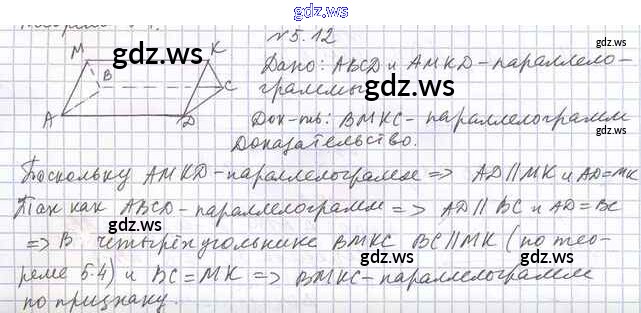 gdz.ws
№ 5.12
M K
B C
A D
gdz.ws
Дано: ABCD и AMKD - параллело-
граммы gdz.ws
Док-ть: BMKC - параллелограмм
Доказательство.
gdz.ws
Поскольку AMKD - параллелограмм => AD || MK и AD = MK
Так как ABCD - параллелограмм => AD || BC и AD = BC
=> В четырёхугольнике BMKC BC || MK (по тео-
реме 5.4) и BC = MK => BMKC - параллелограмм
по признаку.
gdz.ws
gdz.ws
gdz.ws